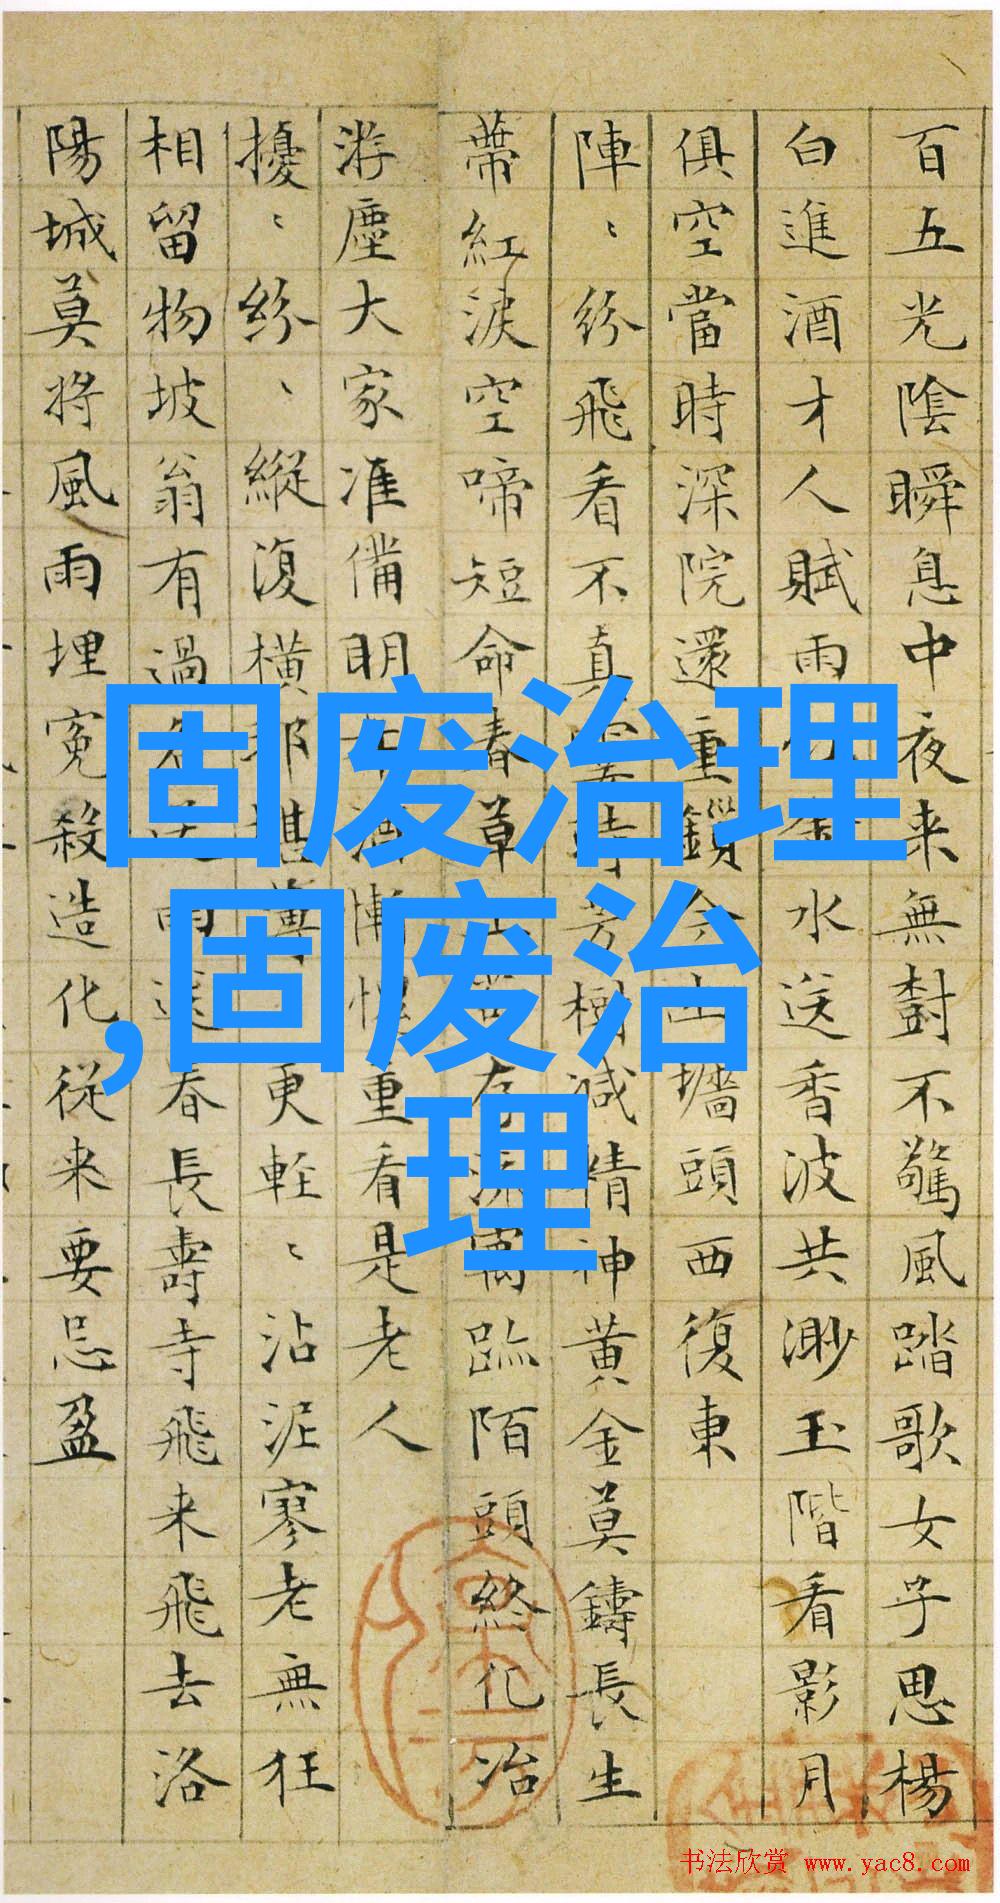 百五光陰瞬息中夜来無對不驚風踏歌女子思楊
白進酒才人賦雨水送香波共渺玉階看影月
俱空當時深院還重鎖今出墻頭西復東
陣〻紛飛看不真芳樹減精神黃金莫鑄長生
蒂紅淚空啼短命春草存流寓跡陌頭終化冶
游塵大家准備明重看是老人
擾〻紛〻縱復橫那堪薄更輕〻沾泥寥老無狂
相留物坡翁有過送春長壽寺飛来飛去洛
陽城莫將風雨埋冤殺造化從来要忌盈
固废治理
,固废治
理
书法欣赏 www.yac8.com